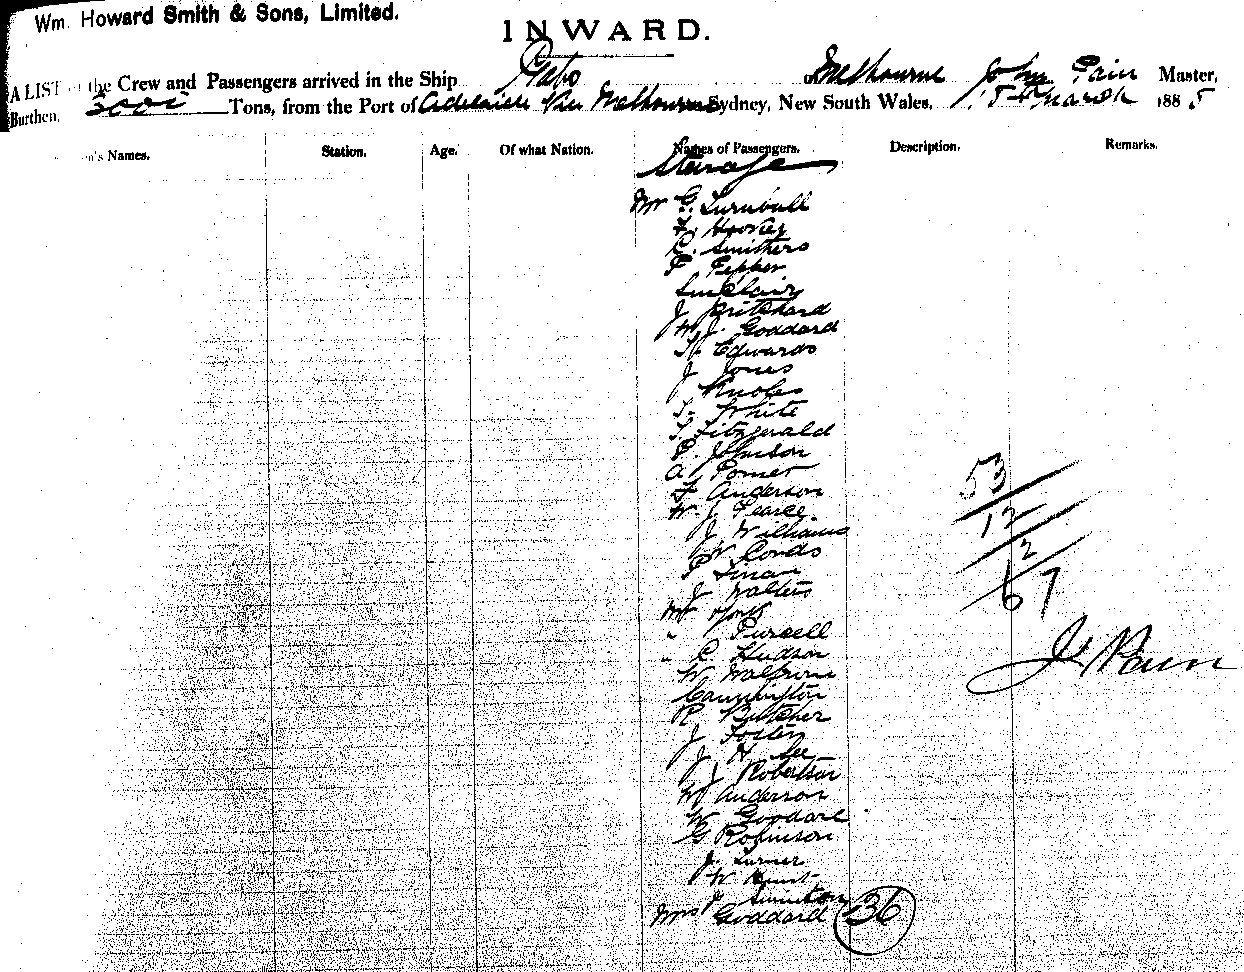 Wm. Howard Smith & Sons, Limited.
INWARD.
A LIST of the Crew and Passengers arrived in the Ship Melbourne John Pain Master,
Burthen, Tons, from the Port of Adelaide Via Melbourne Sydney, New South Wales, 15th March 1885
Names. Station. Age. Of what Nation. Names of Passengers. Description. Remarks.
Steerage
Mr G. Turnbull
F. Hooker
C. Smithers
P Pepper
Sinclair
J Pritchard
W J. Goddard
H. Edwards
J Jones
J Knoles
T. White
T Fitzgerald
P. Johnson
A
F Anderson
W. J. Pearce
J Williams
W
P
J Walters
Mr York
" J Purcell
" C Hudson
W
Cannington
R Butcher
J Foster
J H. Lee
J Robertson
W Anderson
W Goddard
G Robinson
J. Turner
W Hunt
J Swinton
Mrs Goddard 36
53
12
2
67
J Pain